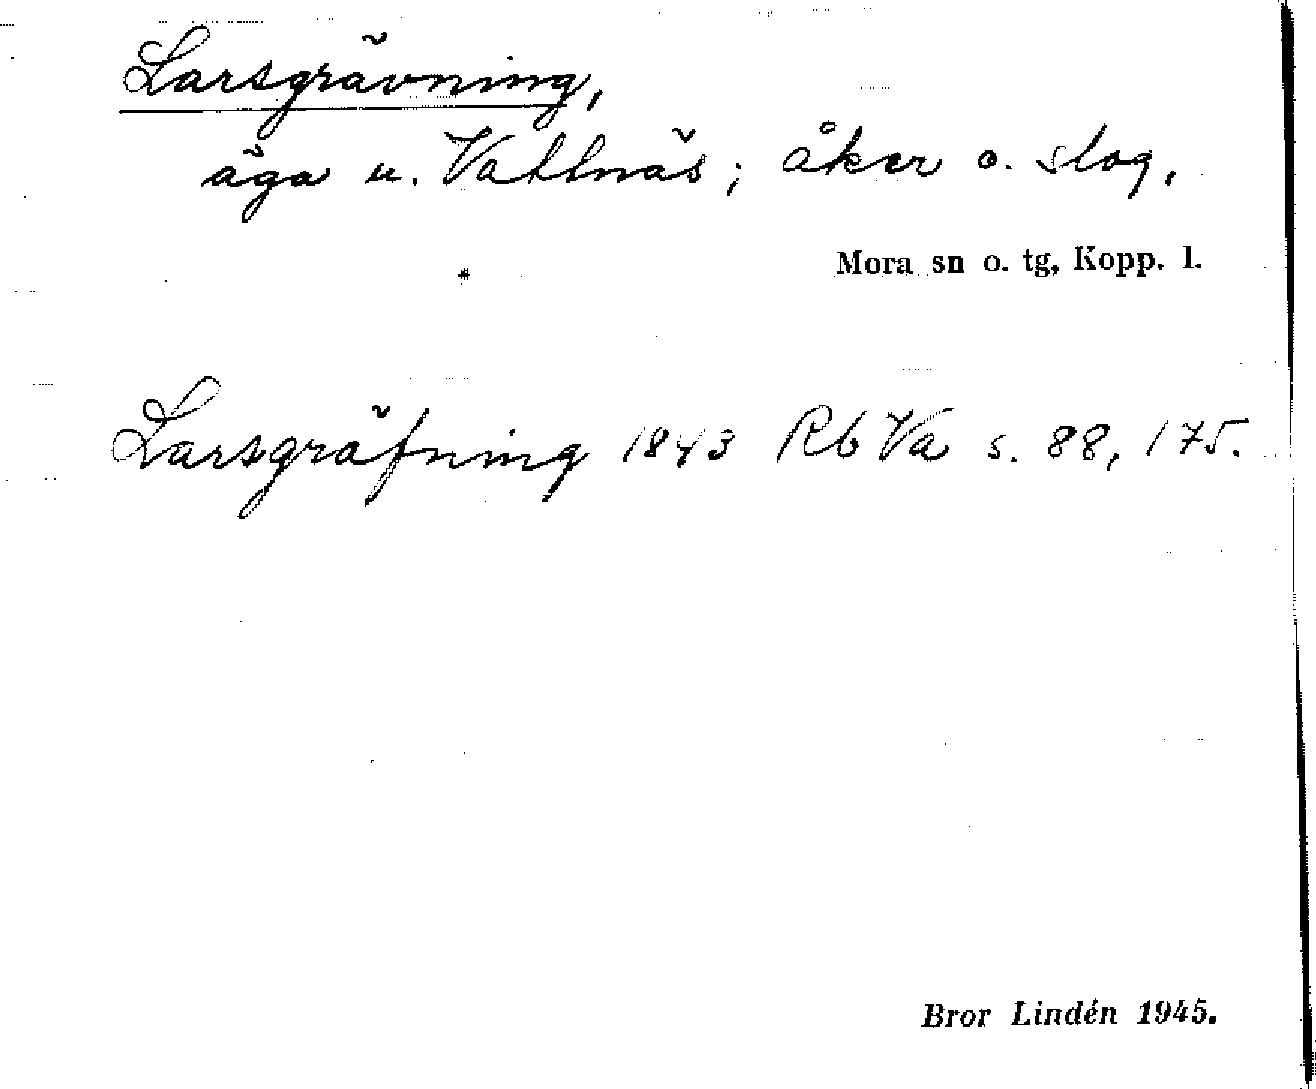 Larsgrävning,
äga u. Vattnäs; åker o. slog.
Mora sn o. tg, Kopp. l.
Larsgräfning 1843 Rb Va s. 88, 175.
Bror Lindén 1945.